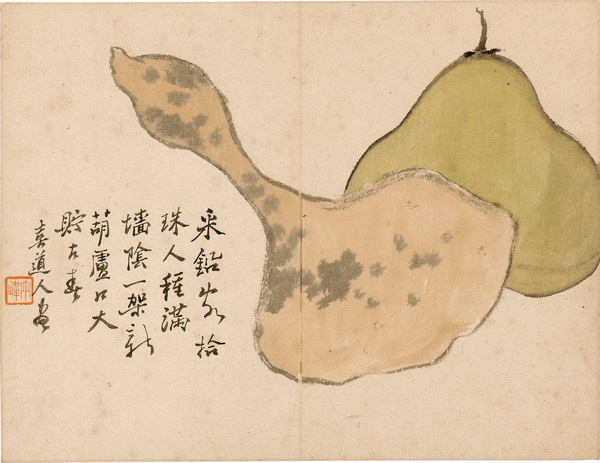 采鉛拾
珠人種滿
墻陰一架新
葫蘆口大
貯古春
喜道人畫